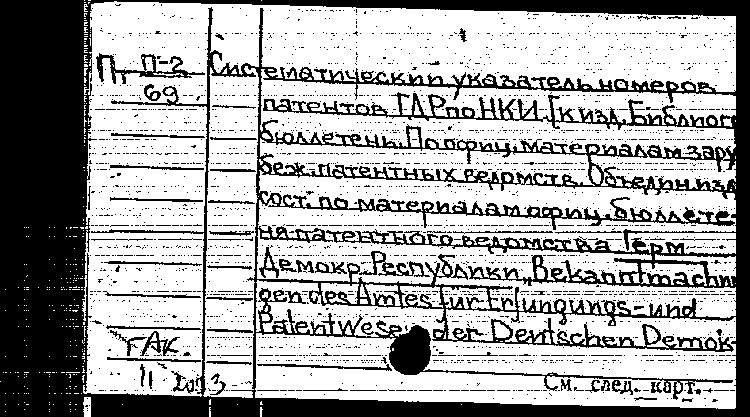 П. П-2
69
Систематический указатель номеров
патентов ГДР по НКИ. [к изд. Библиог
бюллетень. По офиц. материалам зару
беж. патентных ведомств. Объедин. изд.
сост. по материалам офиц. бюллете-
ня патентного ведомства Герм
Демокр. Республики „Bekanntmachn
gen des Amtes für Erfindungs- und
Patentwesen der Deutschen Demok-
ГАК.
См. след. карт.